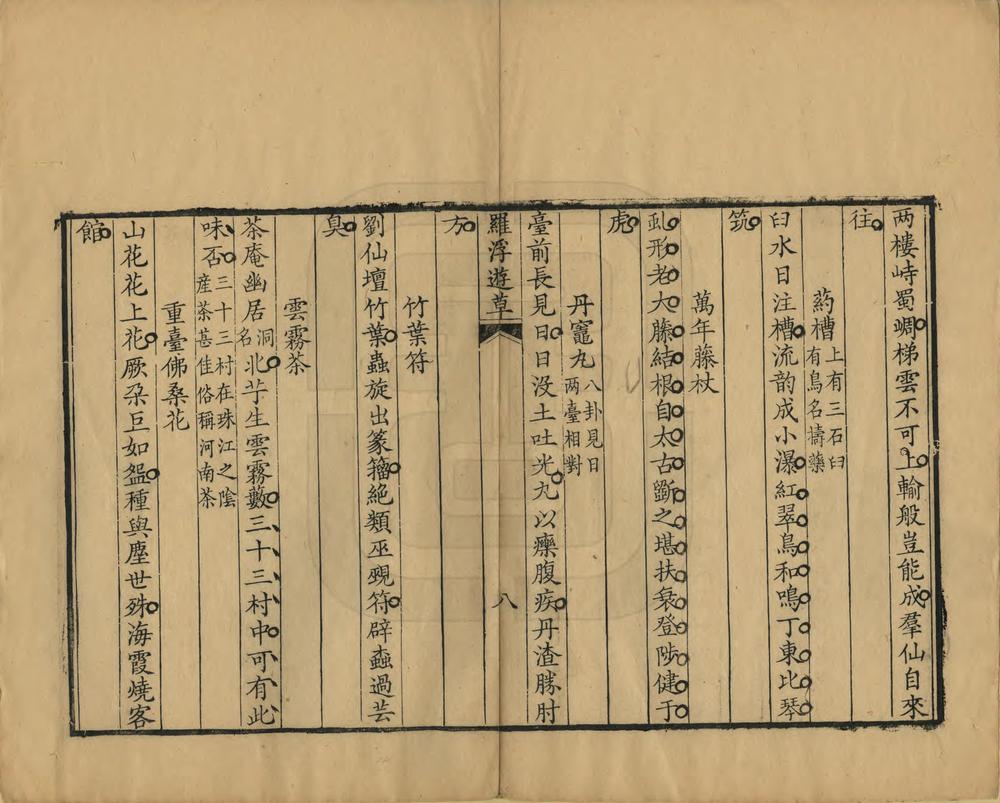 两樓峙蜀㟏梯雲不可上輸般豈能成羣仙自來
往
葯槽上有三石臼有鳥名擣藥
臼水日注槽流韵成小瀑紅翠鳥和鳴丁東比琴
筑
萬年藤杖
虬形老大藤結根自太古斲之堪扶衰登陟健于
虎
丹竈丸八卦見日两臺相對
臺前長見日日没土吐光丸以療腹疾丹渣勝肘
羅浮遊草
八
方
竹葉符
劉仙壇竹葉蟲旋出篆籀絶類巫覡符辟蟲過芸
臭
雲霧茶
茶庵幽居洞名北芓生雲霧藪三十三村中可有此
味否三十三村在珠江之陰産茶甚佳俗稱河南茶
重臺佛桑花
山花花上花厥朶巨如盌種與塵世殊海霞燒客
館